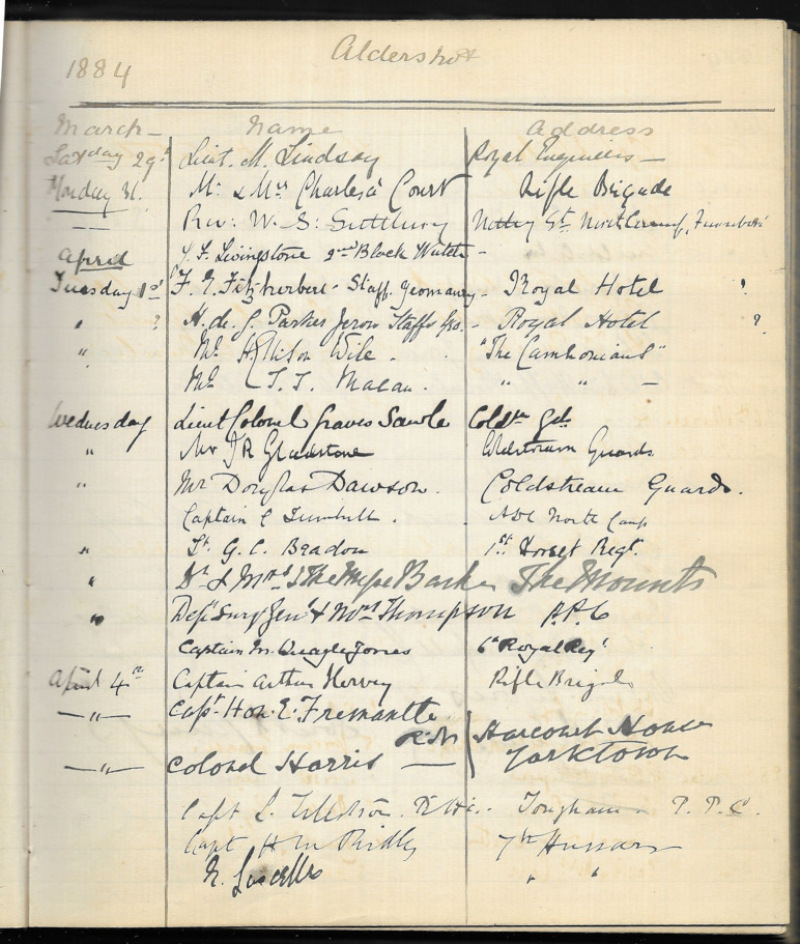 1884 Aldershot
March - Name Address
Satday 29th Lieut. M. Lindsay Royal Engineers -
Monday 31. Mr & Mrs Charles à Court Rifle Brigade
- Rev: W. S: North Camp,
April Livingstone 2nd Black Watch -
Tuesday 1st F. Fitzherbert - Staff - Royal Hotel "
" H. de Parker Staff - Royal Hotel "
" Mr. Wile. "The
Mr T. T. Macan. " " -
Wednesday Lieut Colonel Graves Sawle Coldm Gds.
" Mr J R Gladstone Coldstream Guards
" Mr Douglas Dawson. Coldstream Guards.
Captain C Turnbull. ADC North Camp
" Lt. G. C. Beadon 1st Dorset Regt.
" & Mrs The Mounts
" Depy Surg Genl & Mrs Thompson P.P.C
Captain M. Quayle Jones 6th Royal Regt
April 4th Captain Arthur Hervey Rifle Brigade
- " - Capt. Hon. E. Fremantle R.N Harcourt House
- " - Colonel Harris - Yorktown
Capt L. Tongham P. P. C.
Capt H M Ridley 7th Hussars
Lascelles " "